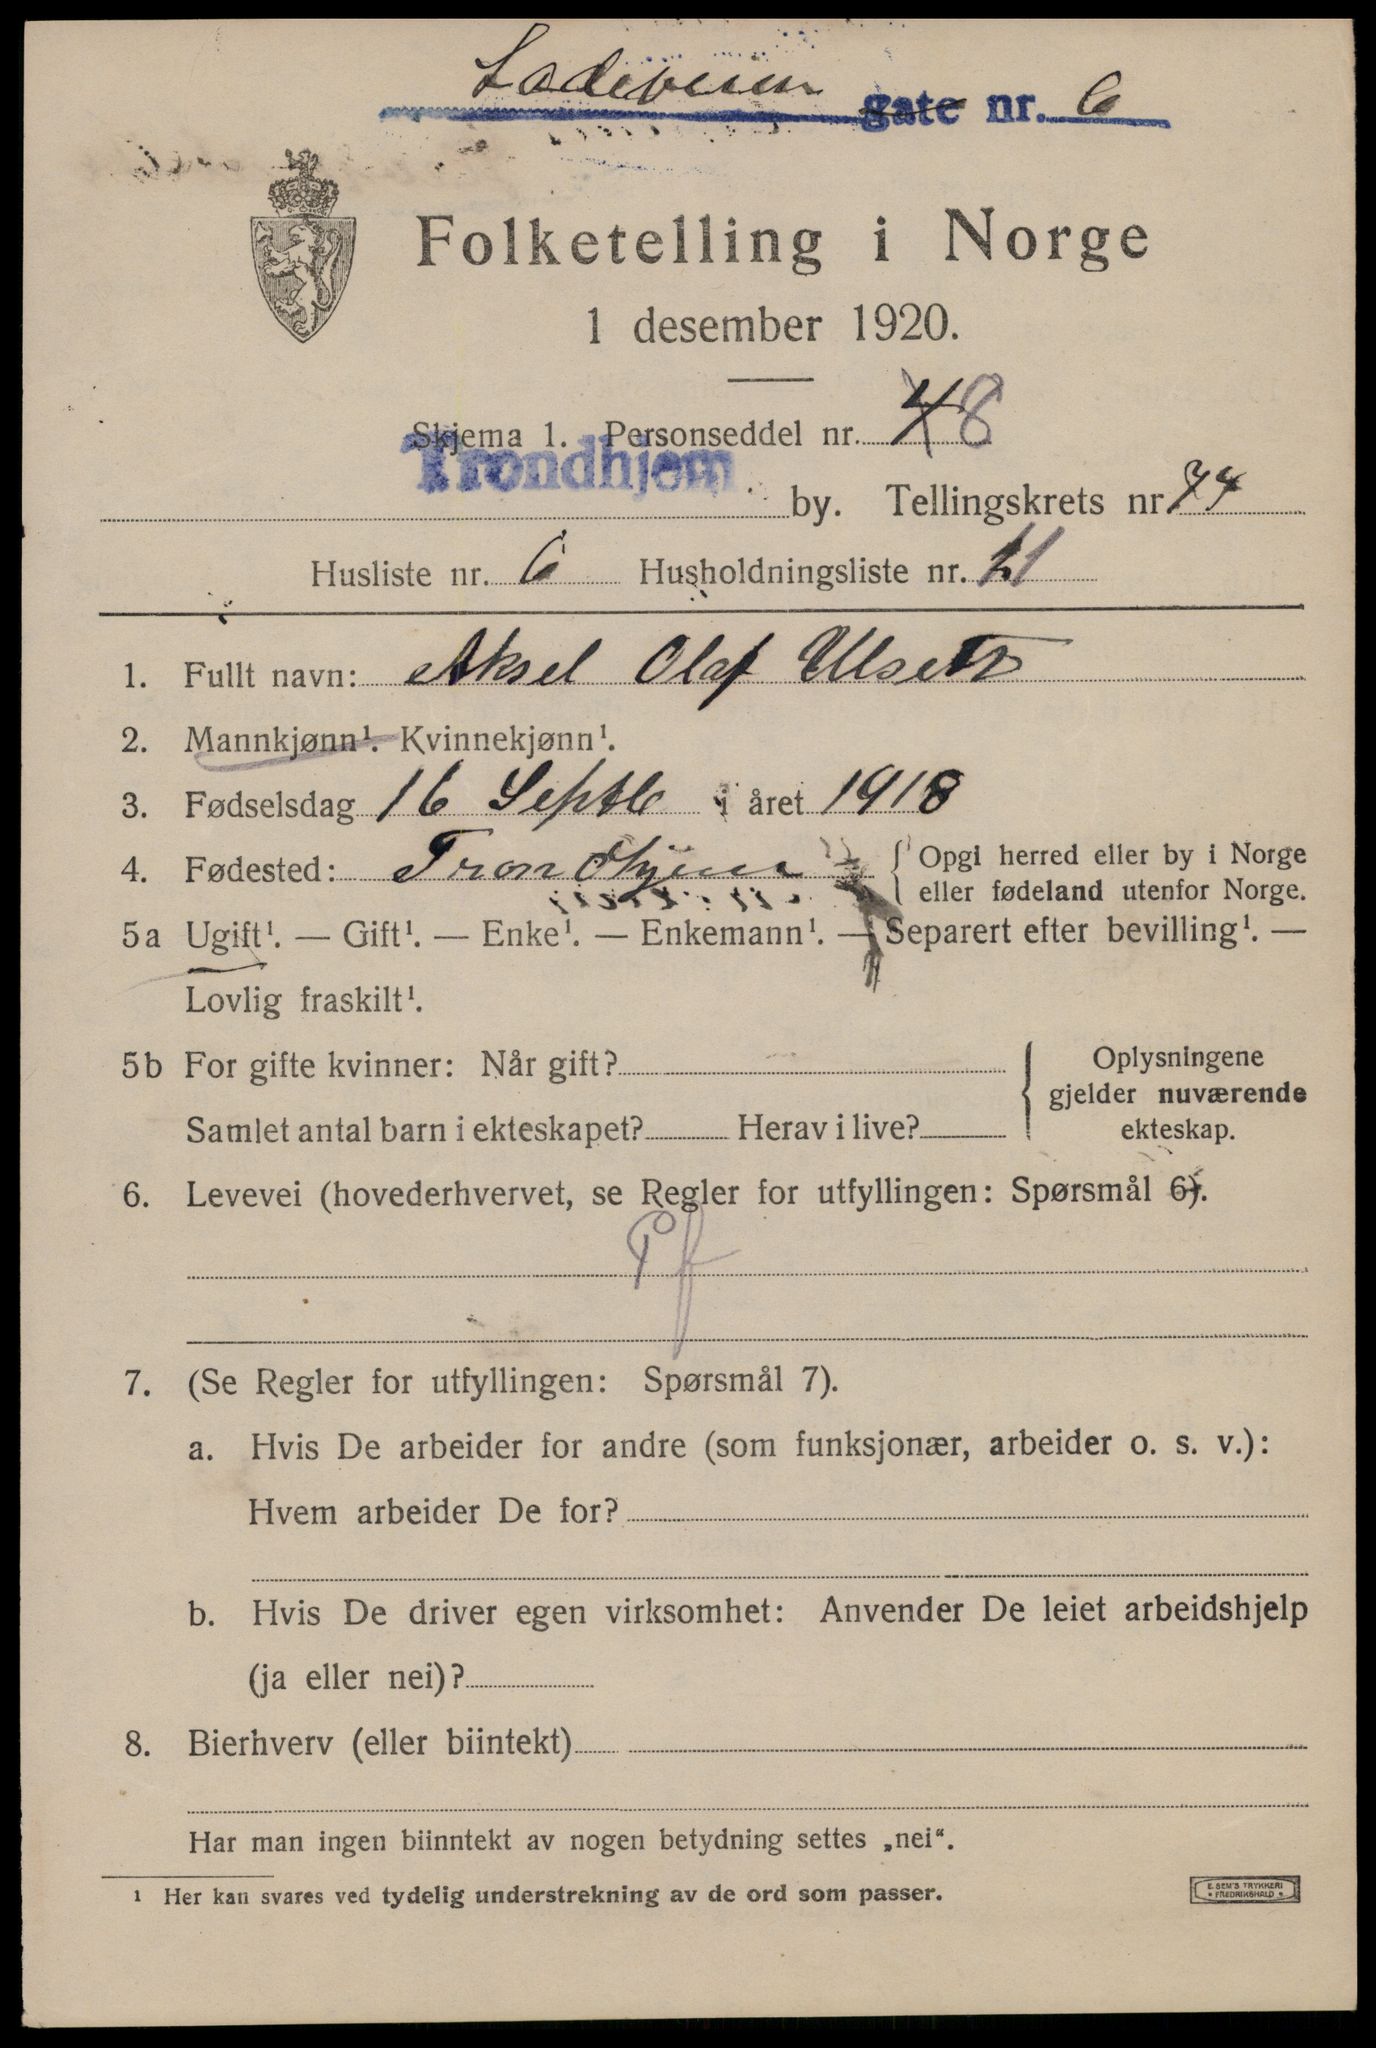 Ladeveien gate nr. 6
Folketelling i Norge
1 desember 1920.
Skjema 1. Personseddel nr. 8
Trondhjem
by. Tellingskrets nr 74
Husliste nr. 6 Husholdningsliste nr. 11
1. Fullt navn: Aksel Olaf Ulseth
2. Mannkjønn¹. Kvinnekjønn¹.
3. Fødselsdag 16 Septb i året 1918
4. Fødested: Trondhjem { Opgi herred eller by i Norge
eller fødeland utenfor Norge.
5a Ugift¹. — Gift¹. — Enke¹. — Enkemann¹. — Separert efter bevilling¹. —
Lovlig fraskilt¹.
5b For gifte kvinner: Når gift? { Oplysningene
gjelder nuværende
Samlet antal barn i ekteskapet? Herav i live? ekteskap.
6. Levevei (hovederhvervet, se Regler for utfyllingen: Spørsmål 6).
Pf
7. (Se Regler for utfyllingen: Spørsmål 7).
a. Hvis De arbeider for andre (som funksjonær, arbeider o. s. v.):
Hvem arbeider De for?
b. Hvis De driver egen virksomhet: Anvender De leiet arbeidshjelp
(ja eller nei)?
8. Bierhverv (eller biintekt)
Har man ingen biinntekt av nogen betydning settes „nei“.
¹ Her kan svares ved tydelig understrekning av de ord som passer.
E. SEM'S TRYKKERI
• FREDRIKSHALD •